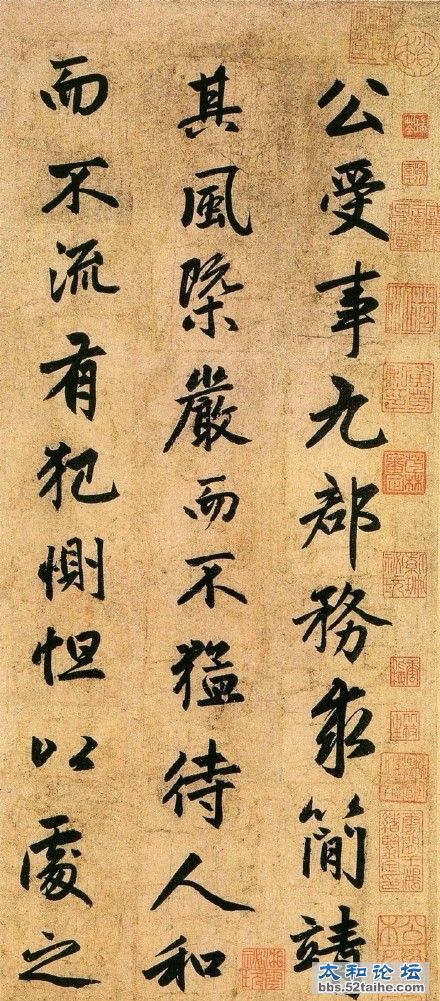 公受事九郡務求簡靖
其風槩嚴而不猛待人和
而不流有犯惻怛以處之
太和论坛
bbs.52taihe.com